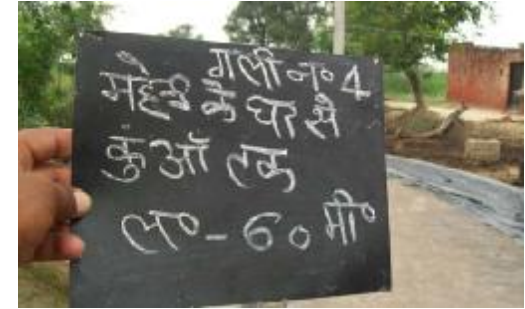 गली न० 4
महेन्द्र के घर से
कुंआँ तक
ल०-60 मी०